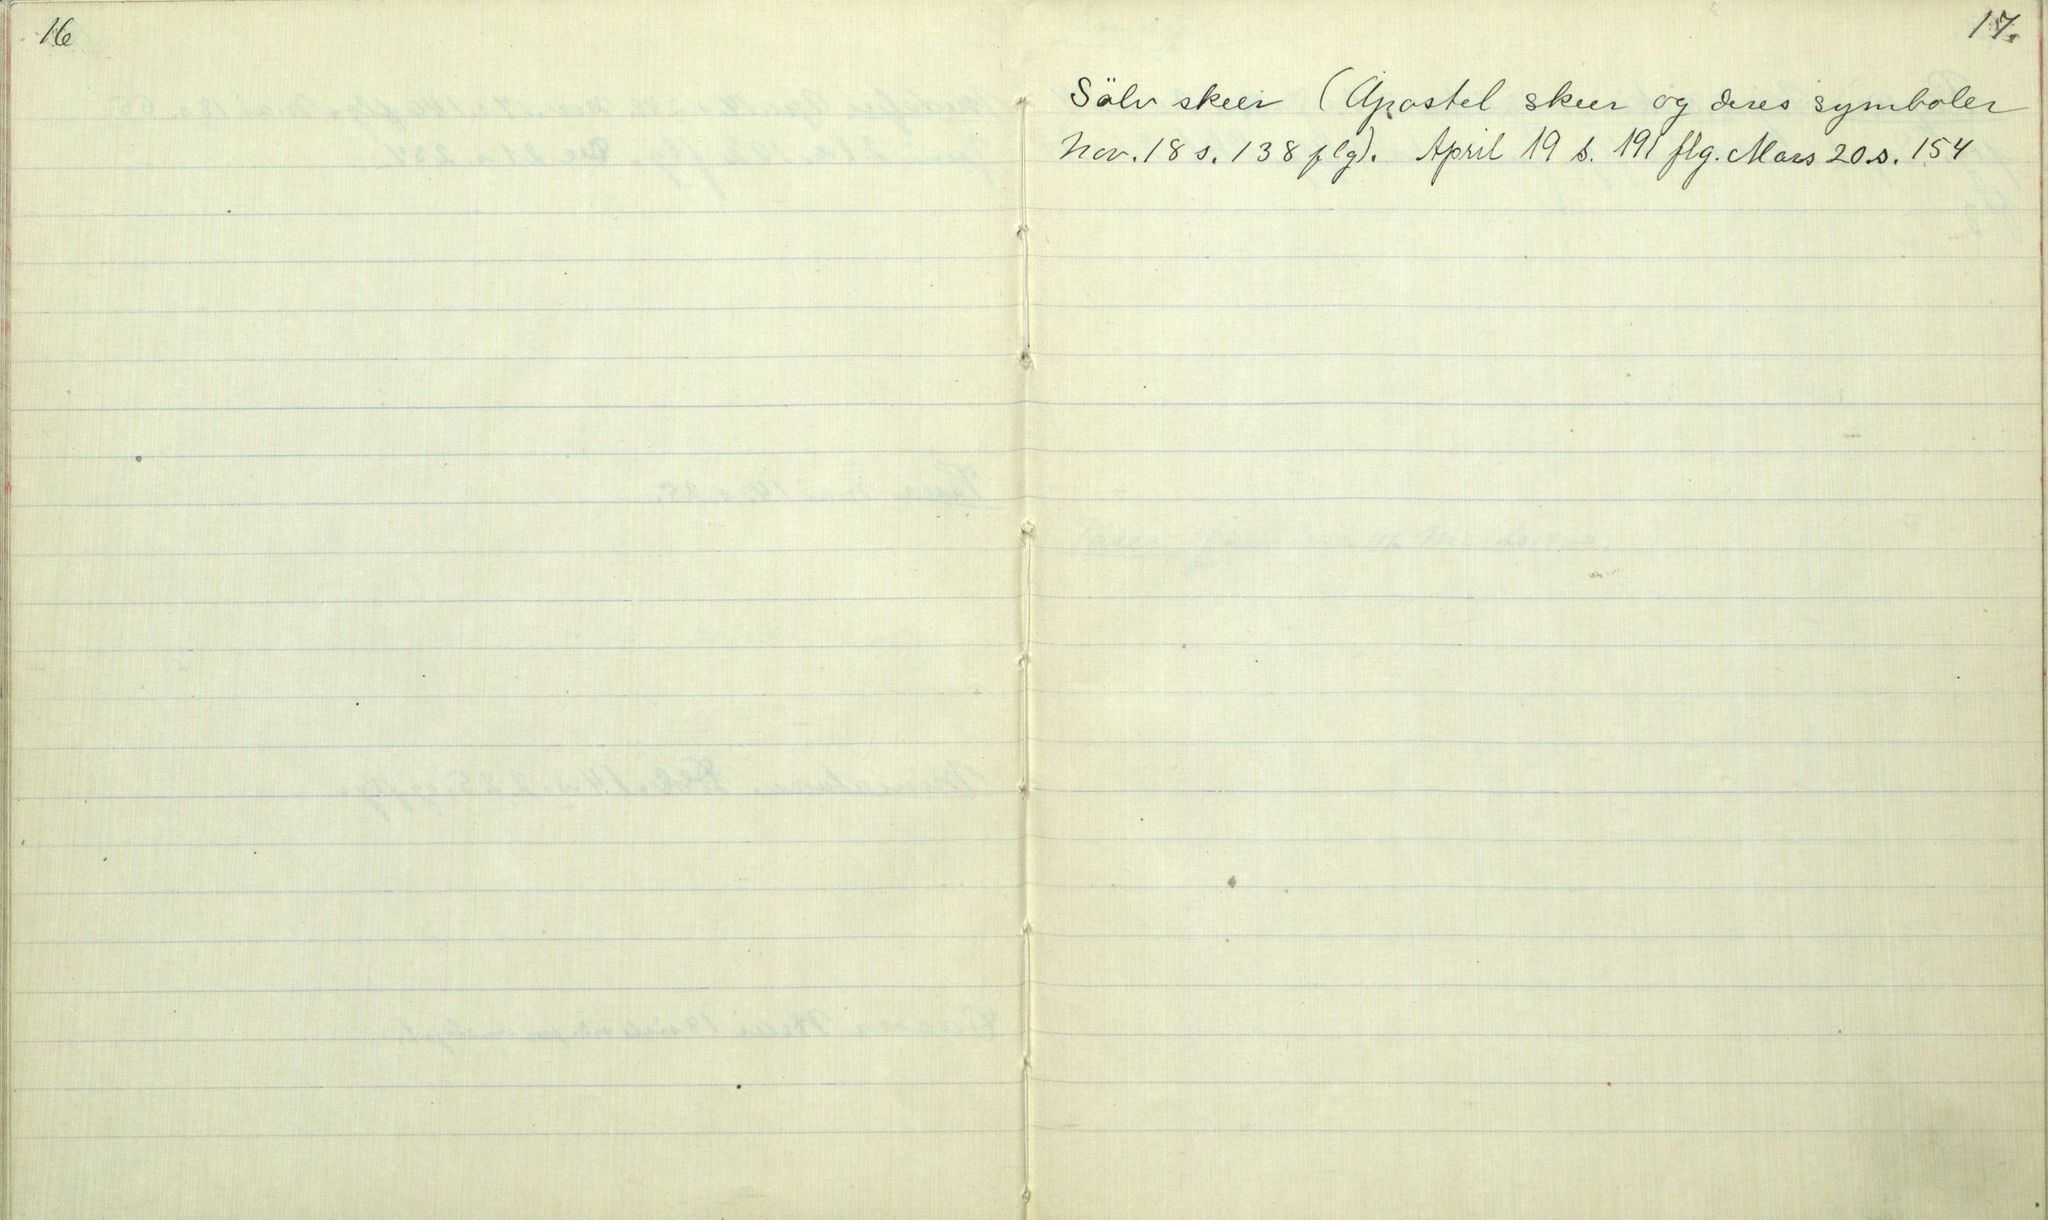 16
17.
Sölv skeer (Apostel skeer og deres symboler
Nov. 18 s. 138 flg). April 19 s. 191 flg. Mars 20. s. 154